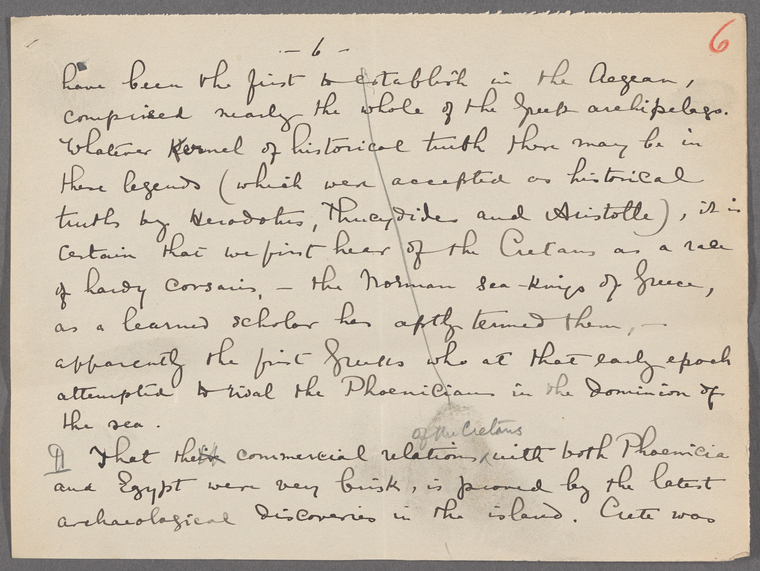 - 6 -
6
have been the first to establish in the Aegean,
comprised nearly the whole of the Greek archipelago.
Whatever Kernel of historical truth there may be in
these legends (which were accepted as historical
truths by Herodotus, Thucydides and Aristotle), it is
certain that we first hear of the Cretans as a race
of hardy corsairs, - the Norman sea-kings of Greece,
as a learned scholar has aptly termed them, -
apparently the first Greeks who at that early epoch
attempted to rival the Phoenicians in the dominion of
the sea.
of the Cretans
¶ That their commercial relations ^ with both Phoenicia
and Egypt were very brisk, is proved by the latest
archaeological discoveries in the island. Crete was